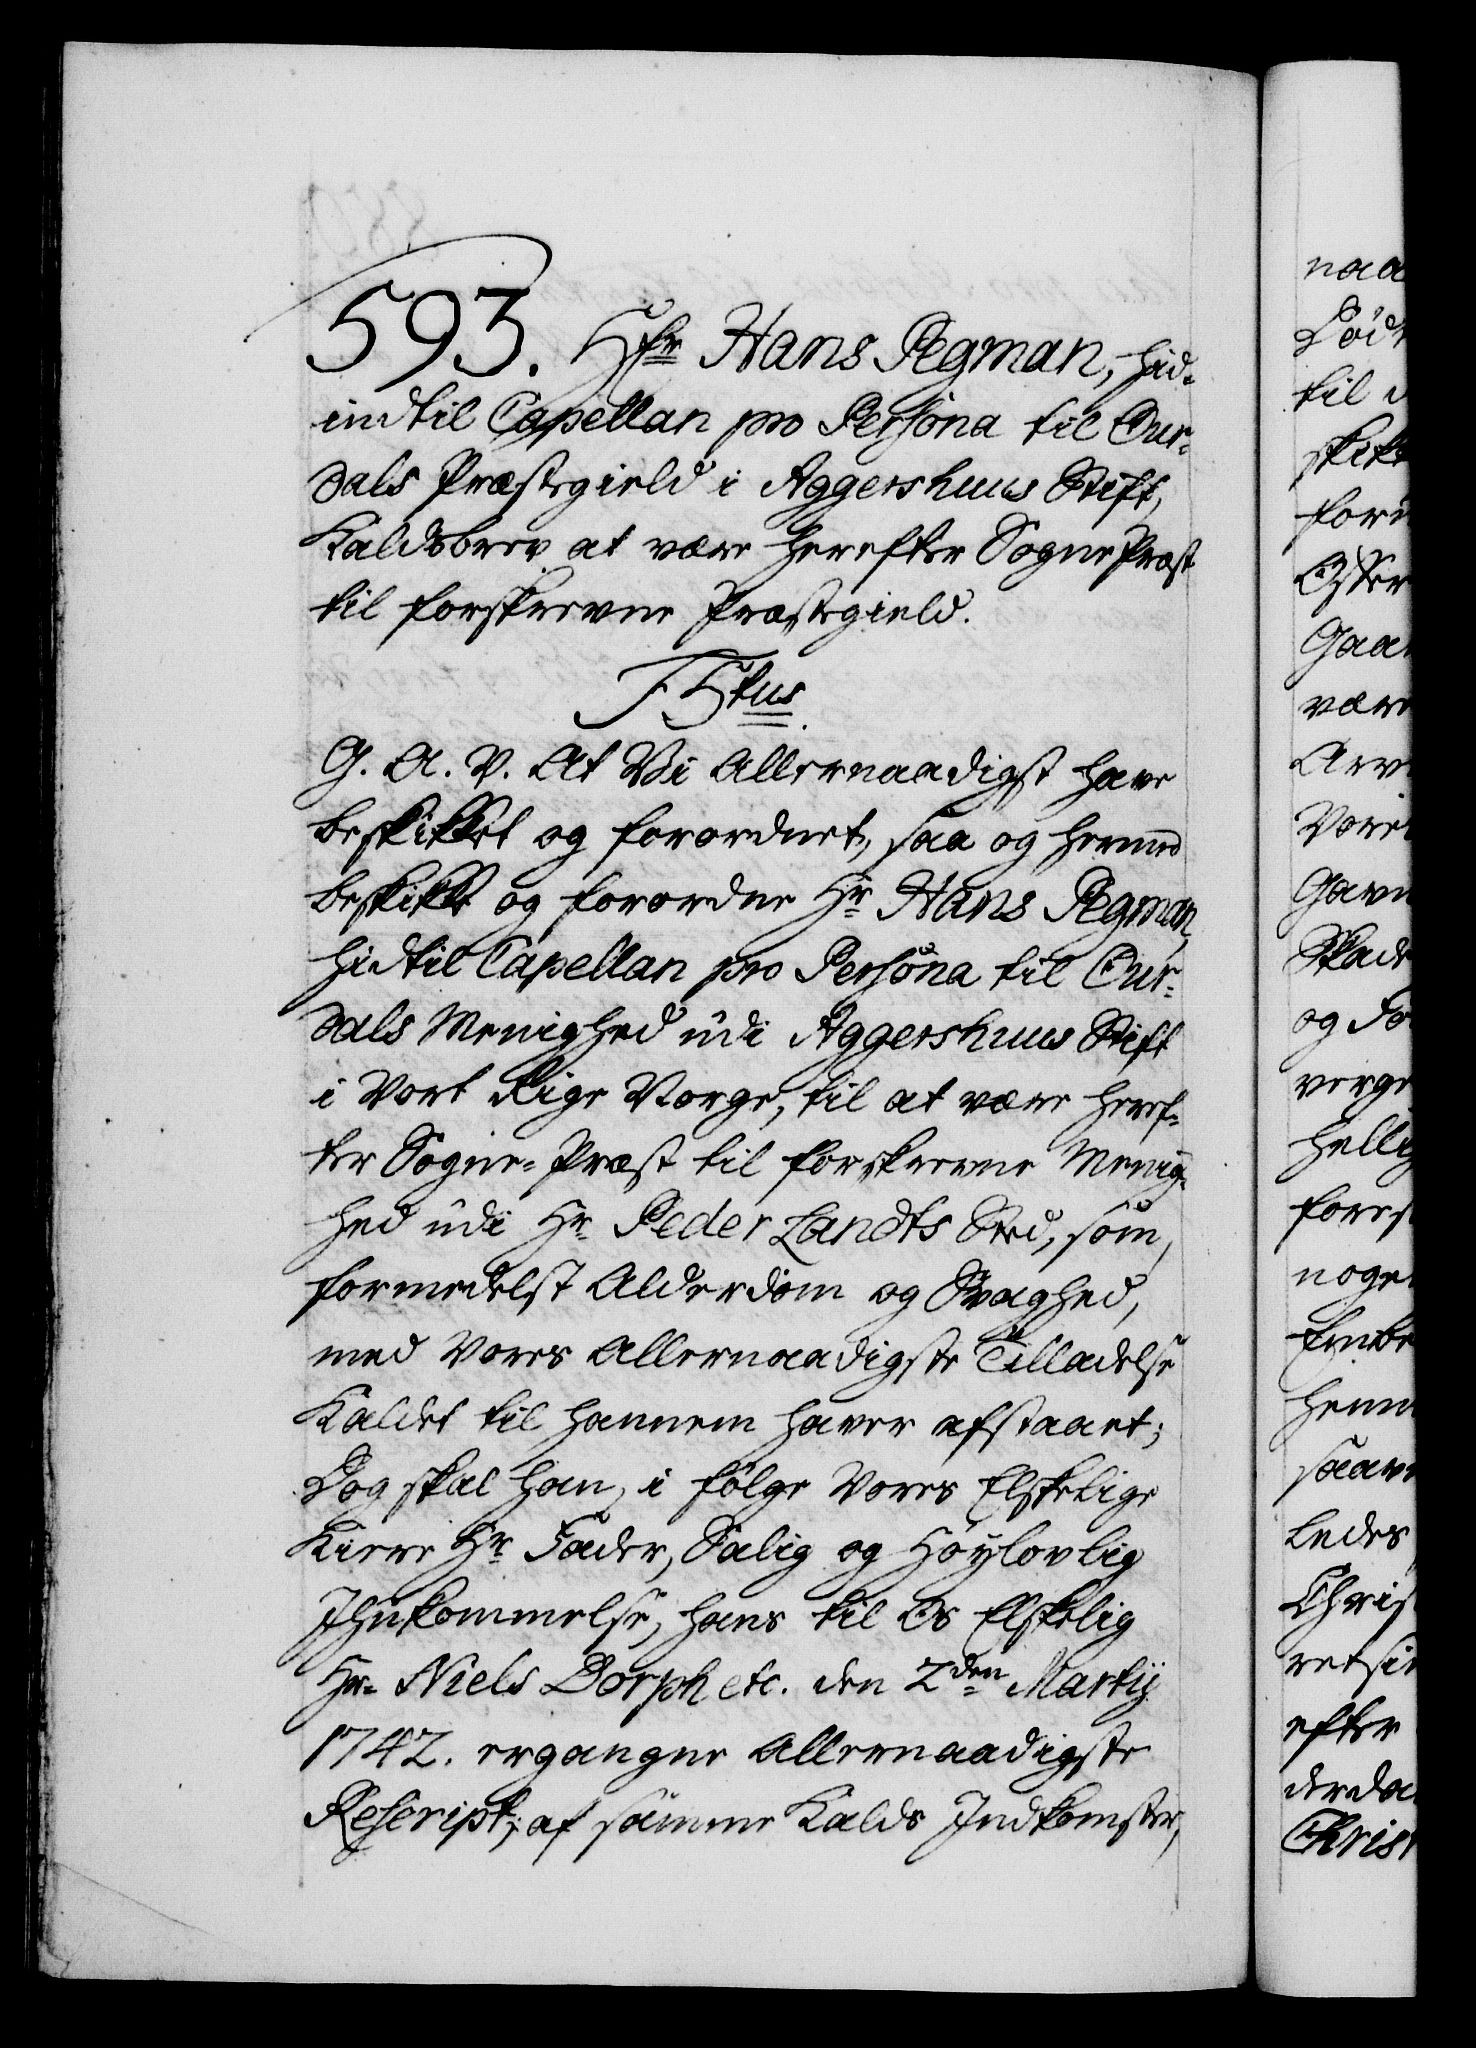 593. Hr Hans Pegman, hid-
indtil Capellan pro Persona til Our-
dals Præstegield i Aggershuus Stift,
Kaldsbrev at være herefter Sogne Præst
til forskrevne Præstegield.
F 5tus
G. A. V. At Vi Allernaadigst have
beskikket og forordnet, saa og hermed
beskikke og forordne Hr Hans Pegman,
hidtil Capellan pro Persona til Our-
dals Menighed udi Aggershuus Stift
i Vort Rige Norge, til at være heref-
ter Sogne-Præst til forskrevne Menig-
hed udi Hr Peder Landts Sted, som,
formedelst Alderdom og Svaghed,
med Vores Allernaadigste Tilladelse
Kaldet til hannem haver afstaaet;
Dog skal han, i følge Vores Elskelige
Kiere Hr Fader, Salig og Høylovlig
Ihukommelse, hans til Os Elskelig
Hr Niels Dorph etc. den 2den Martij
1742. ergangne Allernaadigste
Rescript, af samme Kalds Indkomster,
naa
til
skikk
Gaa
være
Arv
Gavn
Skade
og Fo
verge
hellig
fores
noge
Embe
henn
saav
ledes
Chris
retsi
efter
derda
Chris